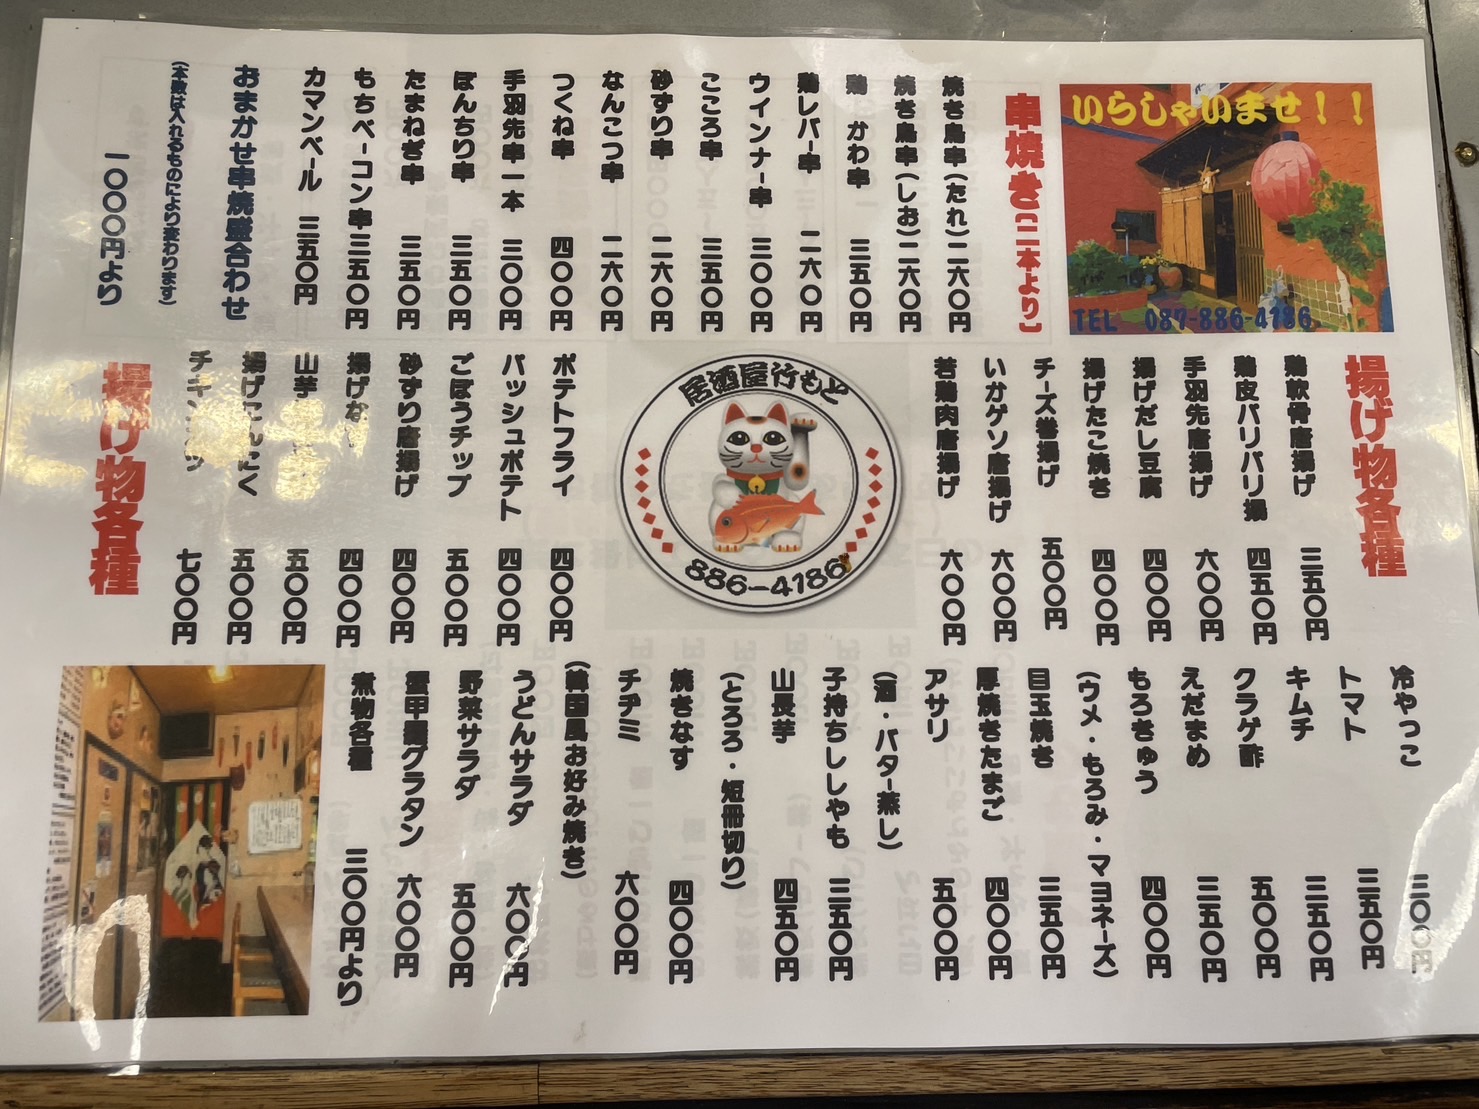 いらっしゃいませ！！
TEL 087-886-4186
串焼き【二本より】
焼き鳥串(たれ)二六〇円
焼き鳥串(しお)二六〇円
鶏 かわ串 三五〇円
鶏レバー串 二六〇円
ウインナー串 三〇〇円
こころ串 三五〇円
砂ずり串 二六〇円
なんこつ串 二六〇円
つくね串 四〇〇円
手羽先串一本 三〇〇円
ぼんちり串 三五〇円
たまねぎ串 三五〇円
もちベーコン串三五〇円
カマンベール 三五〇円
おまかせ串焼盛合わせ
(本数は入れるものにより変わります)
一〇〇〇円より
揚げ物各種
鶏軟骨唐揚げ 三五〇円
鶏皮パリパリ揚 四五〇円
手羽先唐揚げ 六〇〇円
揚げだし豆腐 四〇〇円
揚げたこ焼き 四〇〇円
チーズ巻揚げ 五〇〇円
いかゲソ唐揚げ 六〇〇円
若鶏肉唐揚げ 六〇〇円
居酒屋竹もと
886-4186
ポテトフライ 四〇〇円
ハッシュポテト 四〇〇円
ごぼうチップ 五〇〇円
砂ずり唐揚げ 四〇〇円
揚げな 四〇〇円
山芋 五〇〇円
揚げにんにく 五〇〇円
チキン 七〇〇円
揚げ物各種
冷やっこ 三〇〇円
トマト 三五〇円
キムチ 三五〇円
クラゲ酢 五〇〇円
えだまめ 三五〇円
もろきゅう 四〇〇円
(ウメ・もろみ・マヨネーズ)
目玉焼き 三五〇円
厚焼きたまご 四〇〇円
アサリ 五〇〇円
(酒・バター蒸し)
子持ちししゃも 三五〇円
山長芋 四五〇円
(とろろ・短冊切り)
焼きなす 四〇〇円
チヂミ 六〇〇円
(韓国風お好み焼き)
うどんサラダ 六〇〇円
野菜サラダ 五〇〇円
蟹甲羅グラタン 六〇〇円
煮物各種 三〇〇円より